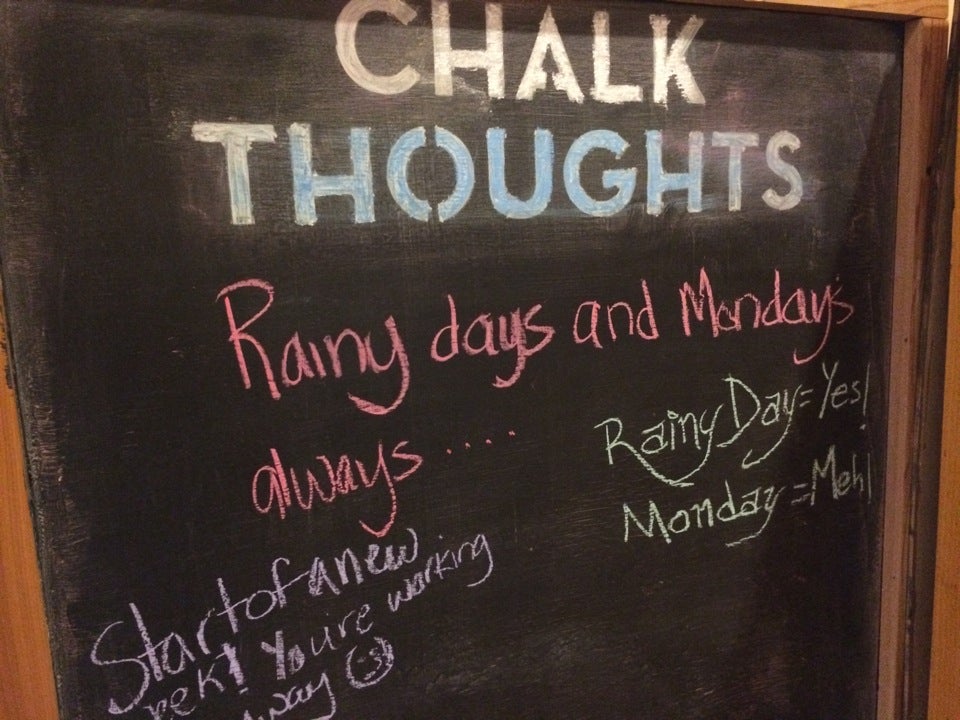 CHALK
THOUGHTS
Rainy days and Monday's
always.....
Rainy Day=Yes!
Monday=Meh!
Start of a new
eek! You're working
way